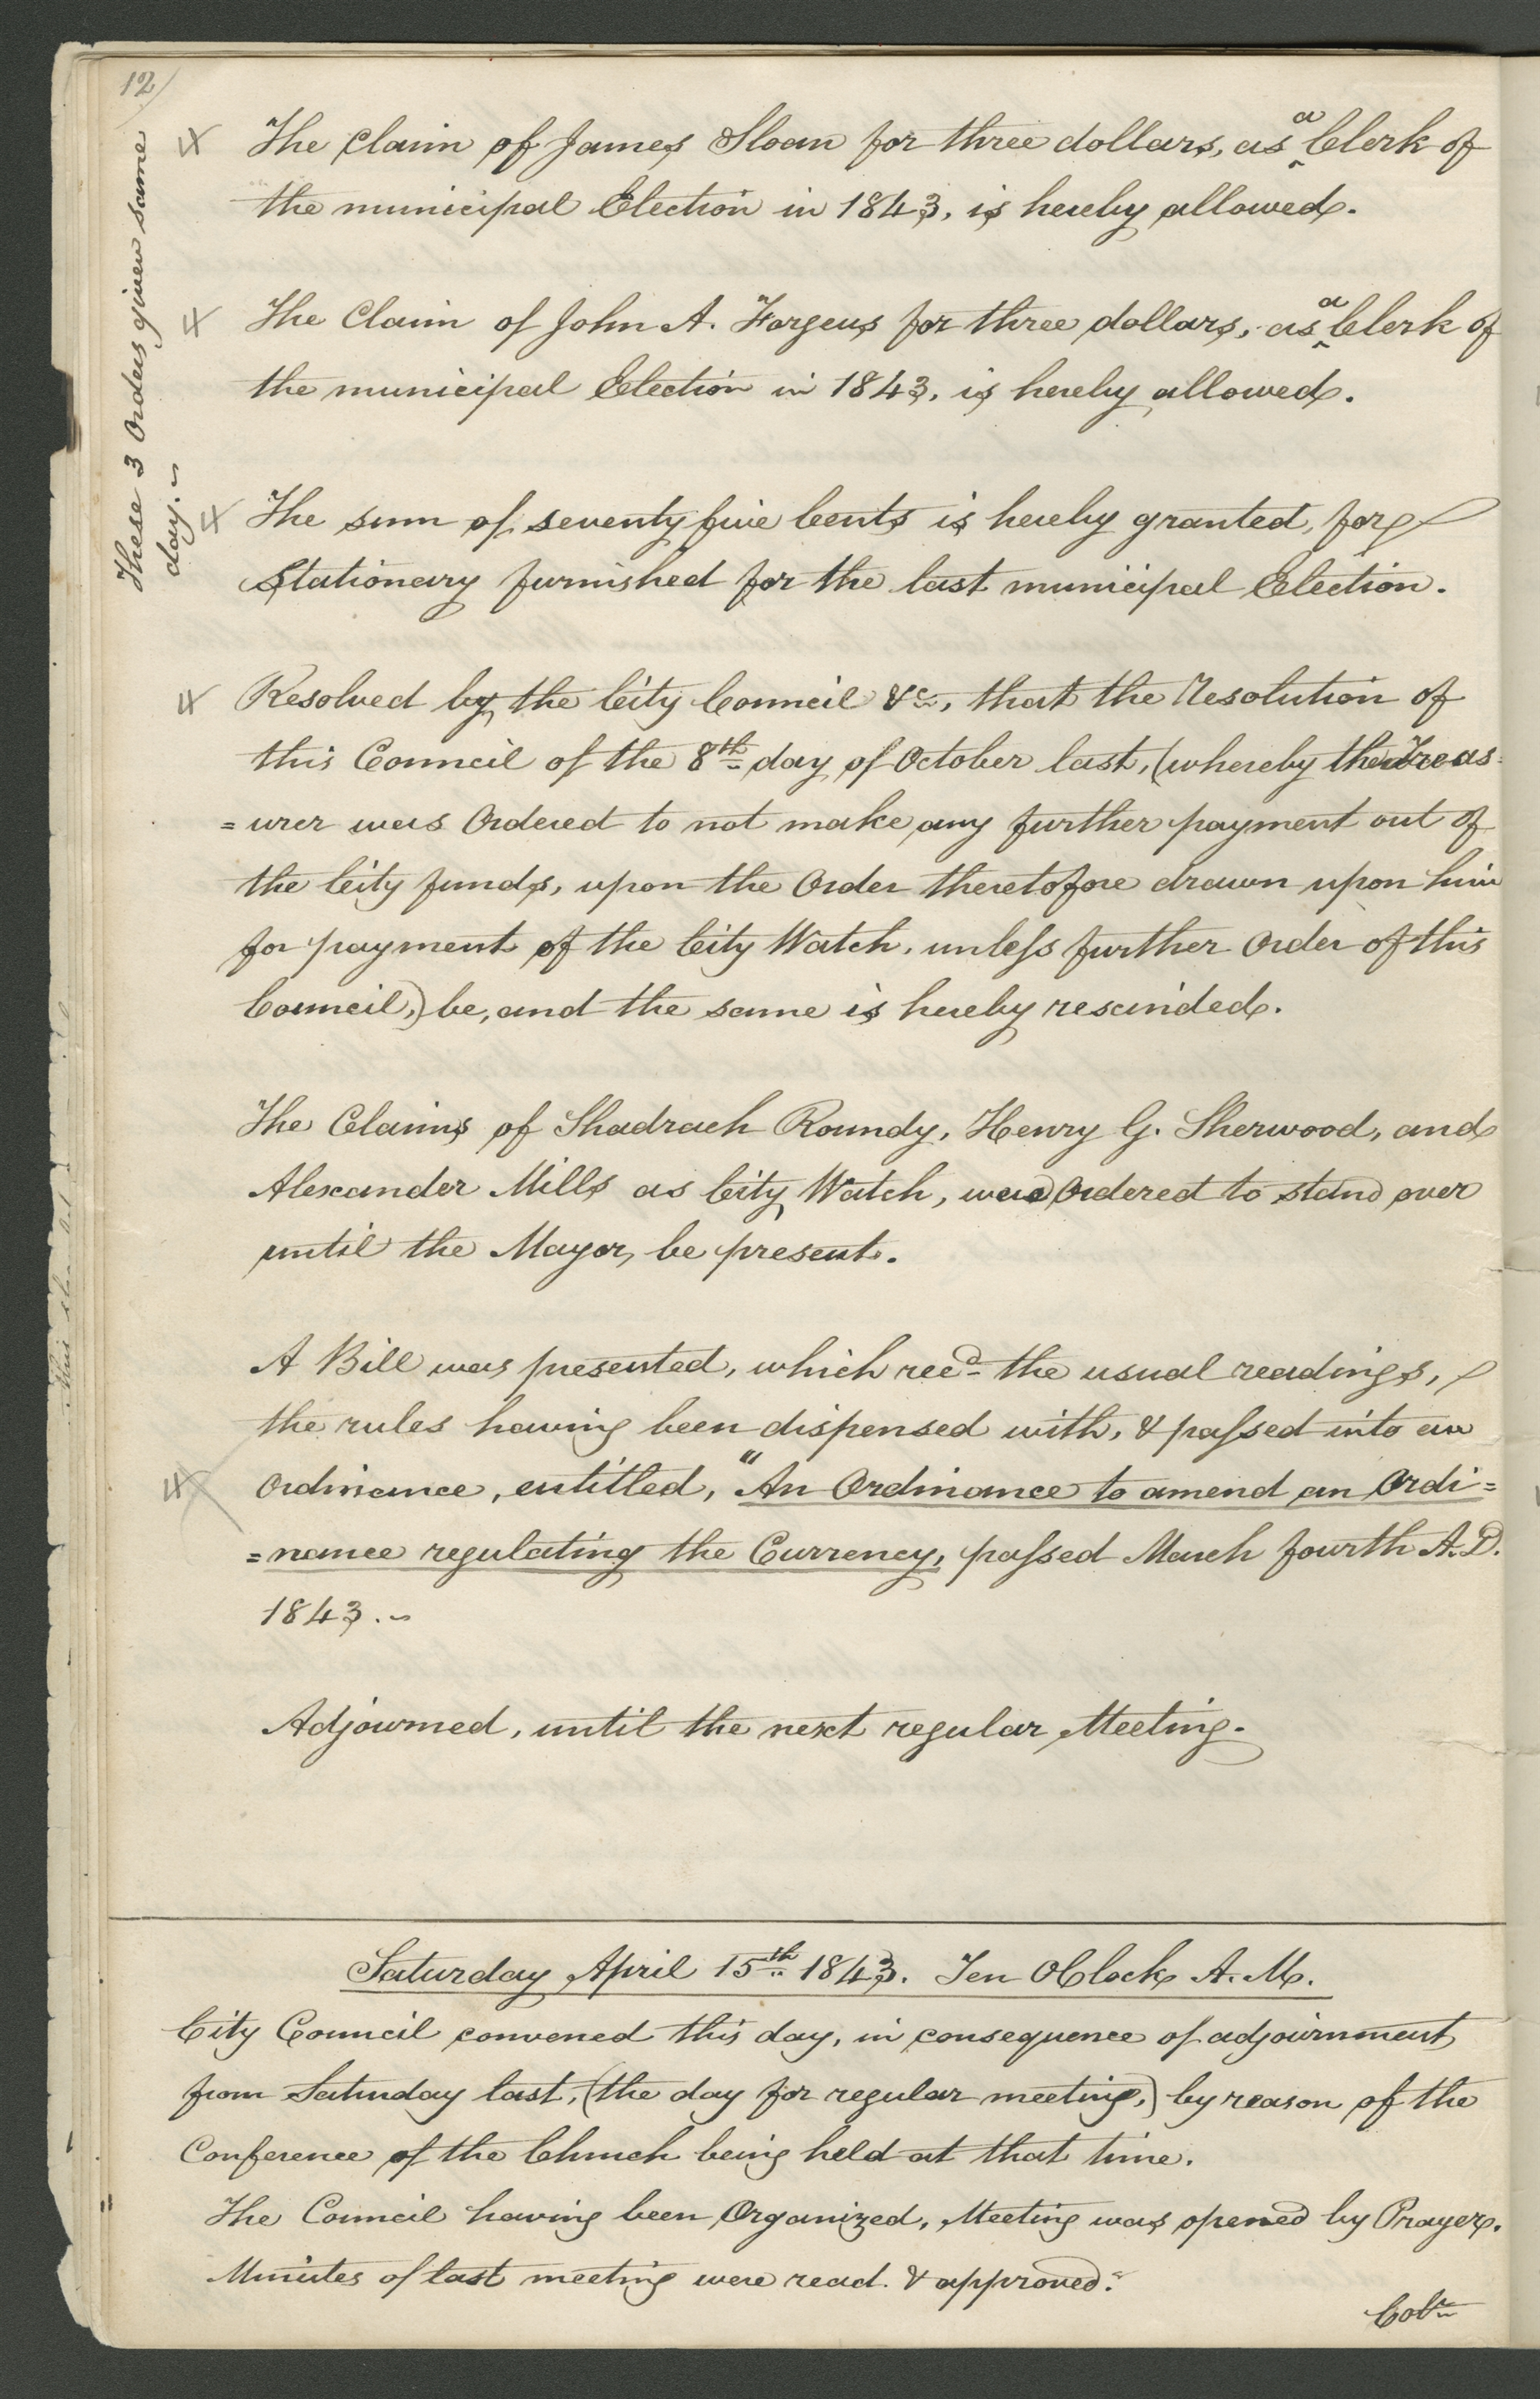 12
These 3 Orders given same
day.~
The claim of James Sloan for three dollars, as a Clerk of
the municipal Election in 1843, is hereby allowed.
The Claim of John A. Forgeus for three dollars, as a Clerk of
the municipal Election in 1843, is hereby allowed.
The sum of seventy five Cents is hereby granted, for
Stationery furnished for the last municipal Election.
Resolved by the City Council &c, that the Resolution of
this Council of the 8th day of October last, (whereby the Treas-
=urer was Ordered to not make any further payment out of
the City funds, upon the Order theretofore drawn upon him
for payment of the City Watch, unless further Order of this
Council,) be, and the same is hereby rescinded.
The Claims of Shadrach Roundy, Henry G. Sherwood, and
Alexander Mills as City Watch, were Ordered to stand over
until the Mayor, be present.
A Bill was presented, which recd the usual readings,
the rules having been dispensed with, & passed into an
Ordinance, entitled, "An Ordinance to amend an Ordi=
=nance regulating the Currency, passed March fourth A.D.
1843.~
Adjourned, until the next regular Meeting.
Saturday April 15th 1843. Ten OClock A.M.
City Council convened this day, in consequence of adjournment
from Saturday last, (the day for regular meeting,) by reason of the
Conference of the Church being held at that time.
The Council having been Organized, Meeting was opened by Prayer.
Minutes of last meeting were read & approved.